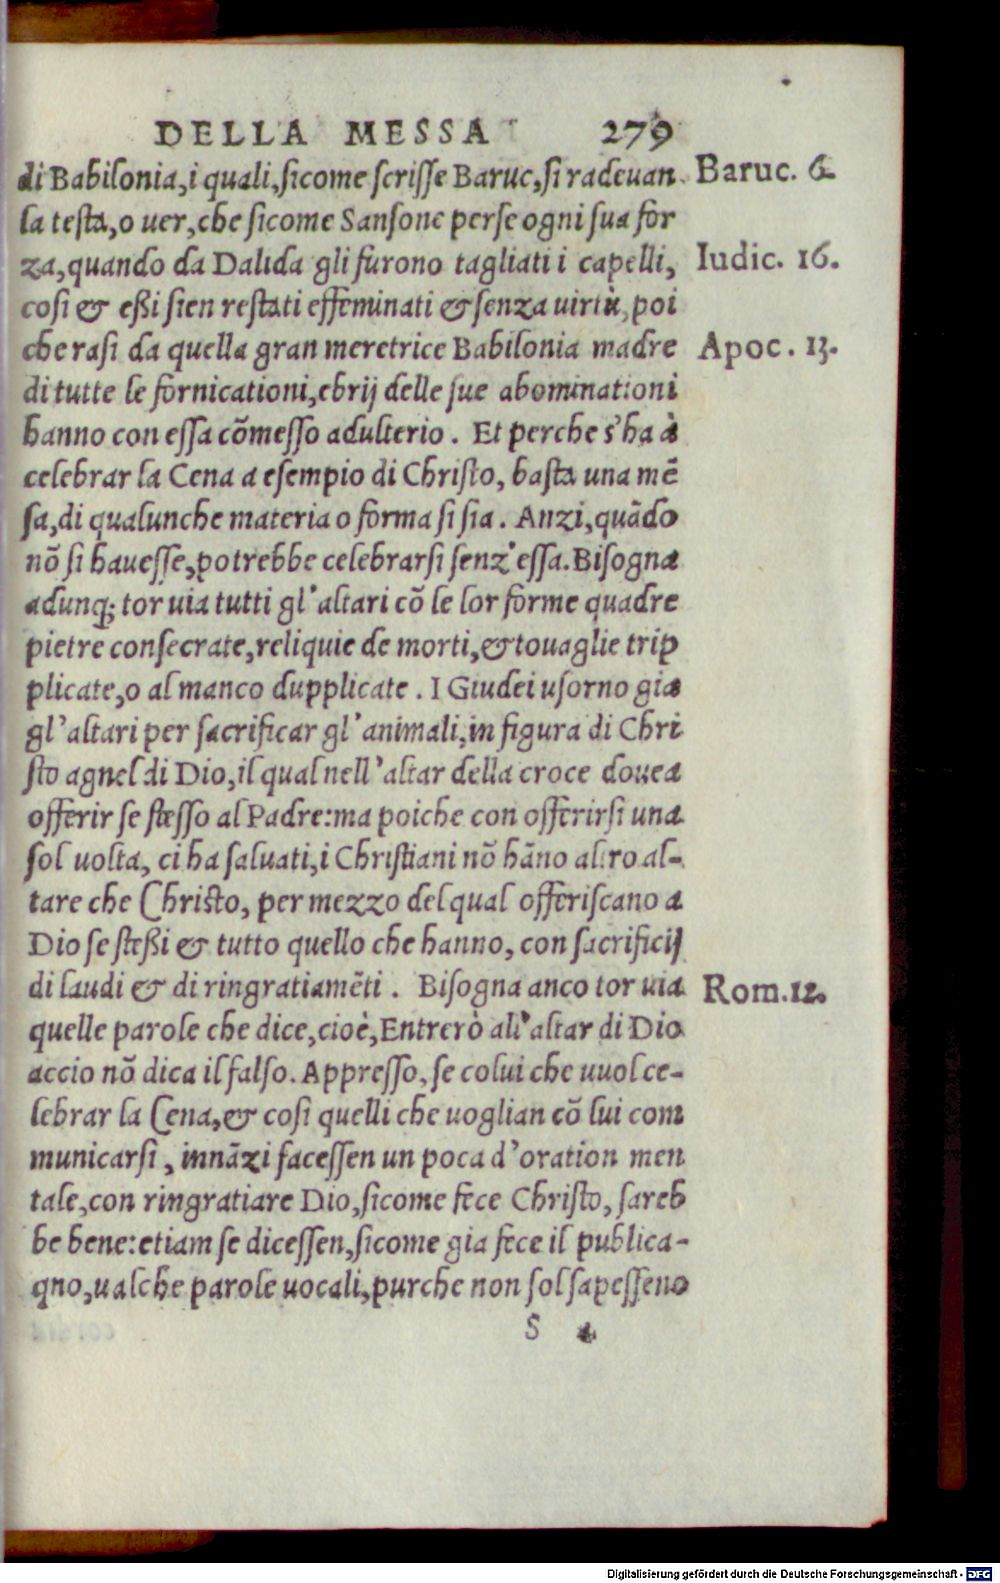 DELLA MESSA 279
di Babilonia, i quali, sicome scrisse Baruc, si radeuan Baruc. 6.
la testa, o uer, che sicome Sansone perse ogni sua for
za, quando da Dalida gli furono tagliati i capelli, Iudic. 16.
cosi & eßi sien restati effeminati & senza uirtù, poi
che rasi da quella gran meretrice Babilonia madre Apoc. 13.
di tutte le fornicationi, ebrij delle sue abominationi
hanno con essa cõmesso adulterio. Et perche s'ha à
celebrar la Cena a esempio di Christo, basta una mẽ
sa, di qualunche materia o forma si sia. Anzi, quãdo
nõ si hauesse, potrebbe celebrarsi senz'essa. Bisogna
adunq; tor uia tutti gl'altari cõ le lor forme quadre
pietre consecrate, reliquie de morti, & touaglie trip
plicate, o al manco dupplicate. I Giudei usorno gia
gl'altari per sacrificar gl'animali, in figura di Chri
sto agnel di Dio, il qual nell'altar della croce douea
offerir se stesso al Padre: ma poiche con offerirsi una
sol uolta, ci ha saluati, i Christiani nõ hãno altro al-
tare che Christo, per mezzo del qual offeriscano a
Dio se steßi & tutto quello che hanno, con sacrificij
di laudi & di ringratiamẽti. Bisogna anco tor uia Rom. 12.
quelle parole che dice, cioè, Entrerò all'altar di Dio
accio nõ dica il falso. Appresso, se colui che uuol ce-
lebrar la Cena, & cosi quelli che uoglian cõ lui com
municarsi, innãzi facessen un poca d'oration men
tale, con ringratiare Dio, sicome fece Christo, sareb
be bene: etiam se dicessen, sicome gia fece il publica-
qno, ualche parole uocali, purche non sol sapesseno
S 4
Digitalisierung gefördert durch die Deutsche Forschungsgemeinschaft - DFG